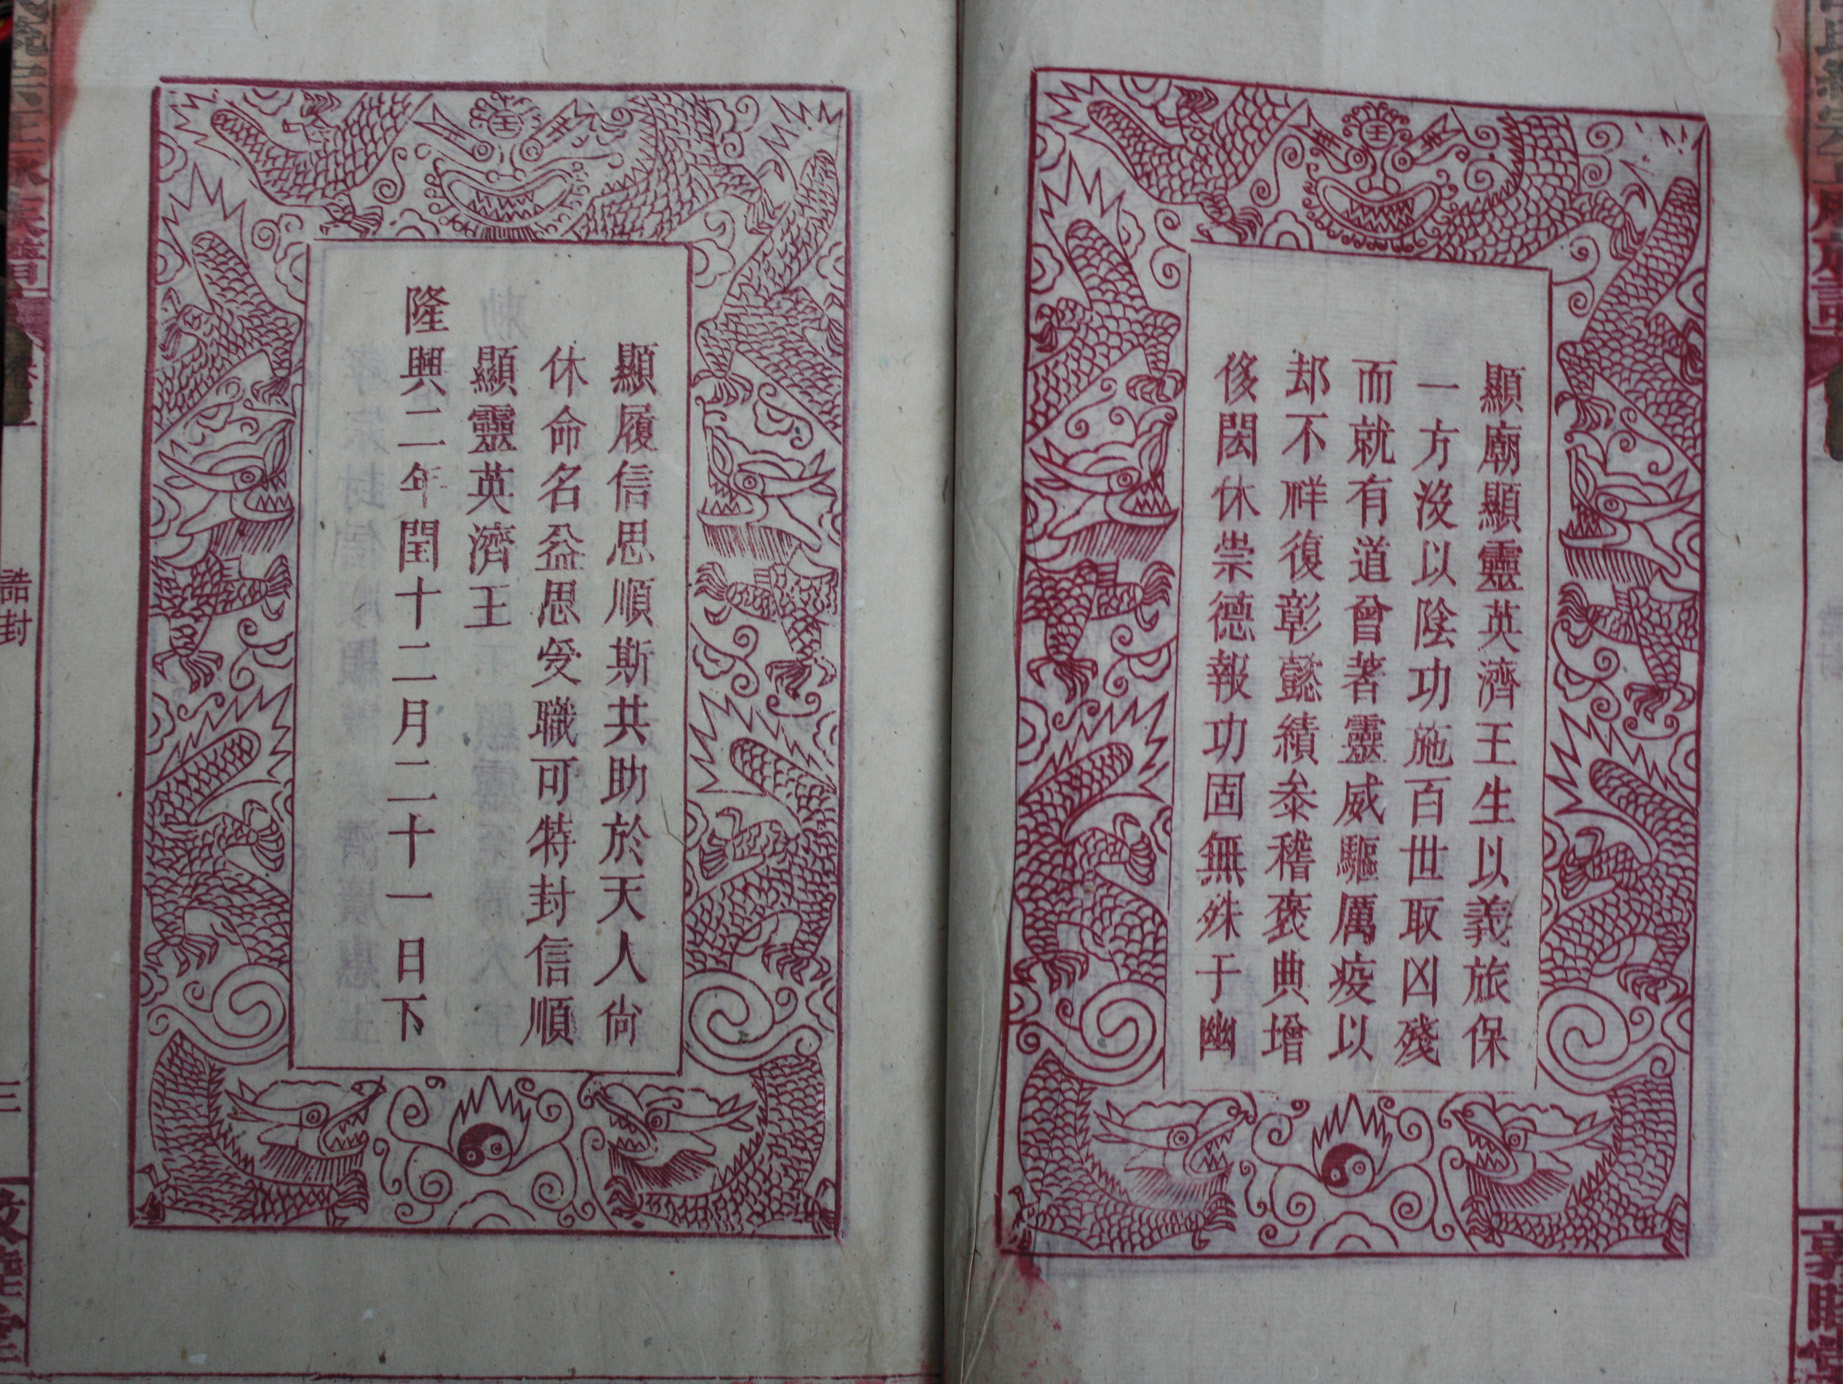 顯廟顯靈英濟王生以義旅保
一方沒以陰功施百世取凶殘
而就有道曾著靈威驅厲疫以
却不祥復彰懿績叅稽褒典增
侈閎休崇德報功固無殊于幽
顯履信思順斯共助於天人尙
休命名益思受職可特封信順
顯靈英濟王
隆興二年閏十二月二十一日下
誥封
三